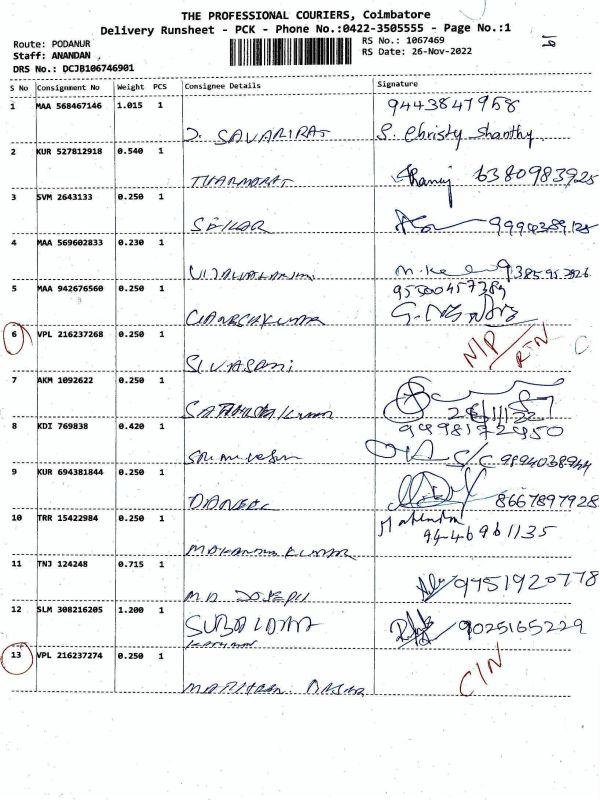 THE PROFESSIONAL COURIERS, Coimbatore
Delivery Runsheet - PCK - Phone No.:0422-3505555 - Page No.:1
Route: PODANUR
RS No.: 1067469
Staff: ANANDAN .
RS Date: 26-Nov-2022
DRS No.: DCJB106746901
S No Consignment No Weight PCS Consignee Details Signature
1 MAA 568467146 1.015 1 9443847958
D. SAVARIRAJ S. Christy Shanthy
2 KUR 527812918 0.540 1
THARMARAJ 6380983925
3 SVM 2643133 0.250 1
SEKAR
4 MAA 569602833 0.230 1
VIJAYALAXMI
5 MAA 942676560 0.250 1
GANESHKUMAR
6 VPL 216237268 0.250 1 N/P RTN
SIVASAMI
7 AKM 1092622 0.250 1
26/11/22
8 KDI 769838 0.420 1
S/C
9 KUR 694381844 0.250 1
DANIEL 8667897928
10 TRR 15422984 0.250 1 Mahendra
94-46961135
MAHANDRA KUMAR
11 TNJ 124248 0.715 1
M.A JOSEPH 9751920778
12 SLM 308216205 1.200 1
9025165229
13 VPL 216237274 0.250 1 CIN